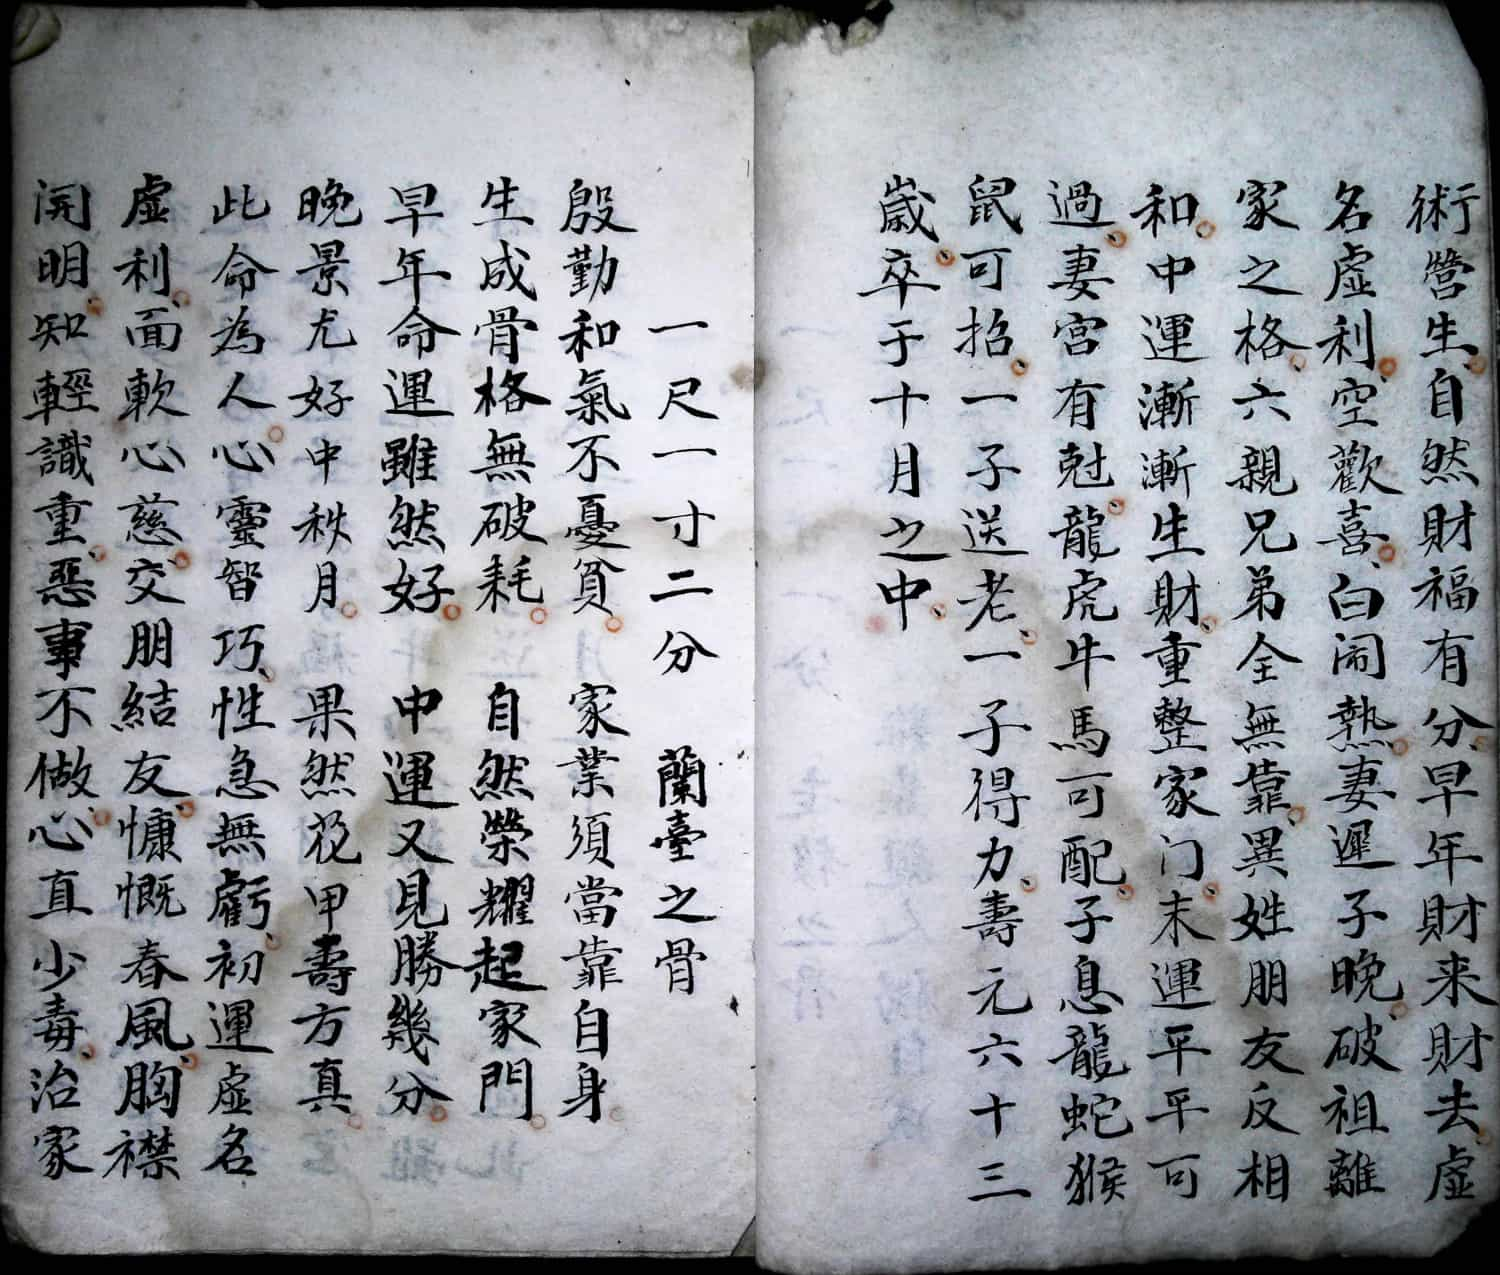 術營生自然財福有分早年財来財去虛
名虛利空歡喜白闹熱妻遲子晚破祖離
家之格六親兄弟全無靠異姓朋友反相
和中運漸漸生財重整家门末運平平可
過妻宮有尅龍虎牛馬可配子息龍蛇猴
鼠可招一子送老一子得力壽元六十三
歲卒于十月之中
一尺一寸二分 蘭臺之骨
殷勤和氣不憂貧 家業須當靠自身
生成骨格無破耗 自然榮耀起家門
早年命運雖然好 中運又見勝幾分
晚景尤好中秋月 果然花甲壽方真
此命為人心靈智巧性急無虧初運虛名
虛利面軟心慈交朋結友慷慨春風胸襟
開明知輕識重惡事不做心直少毒治家